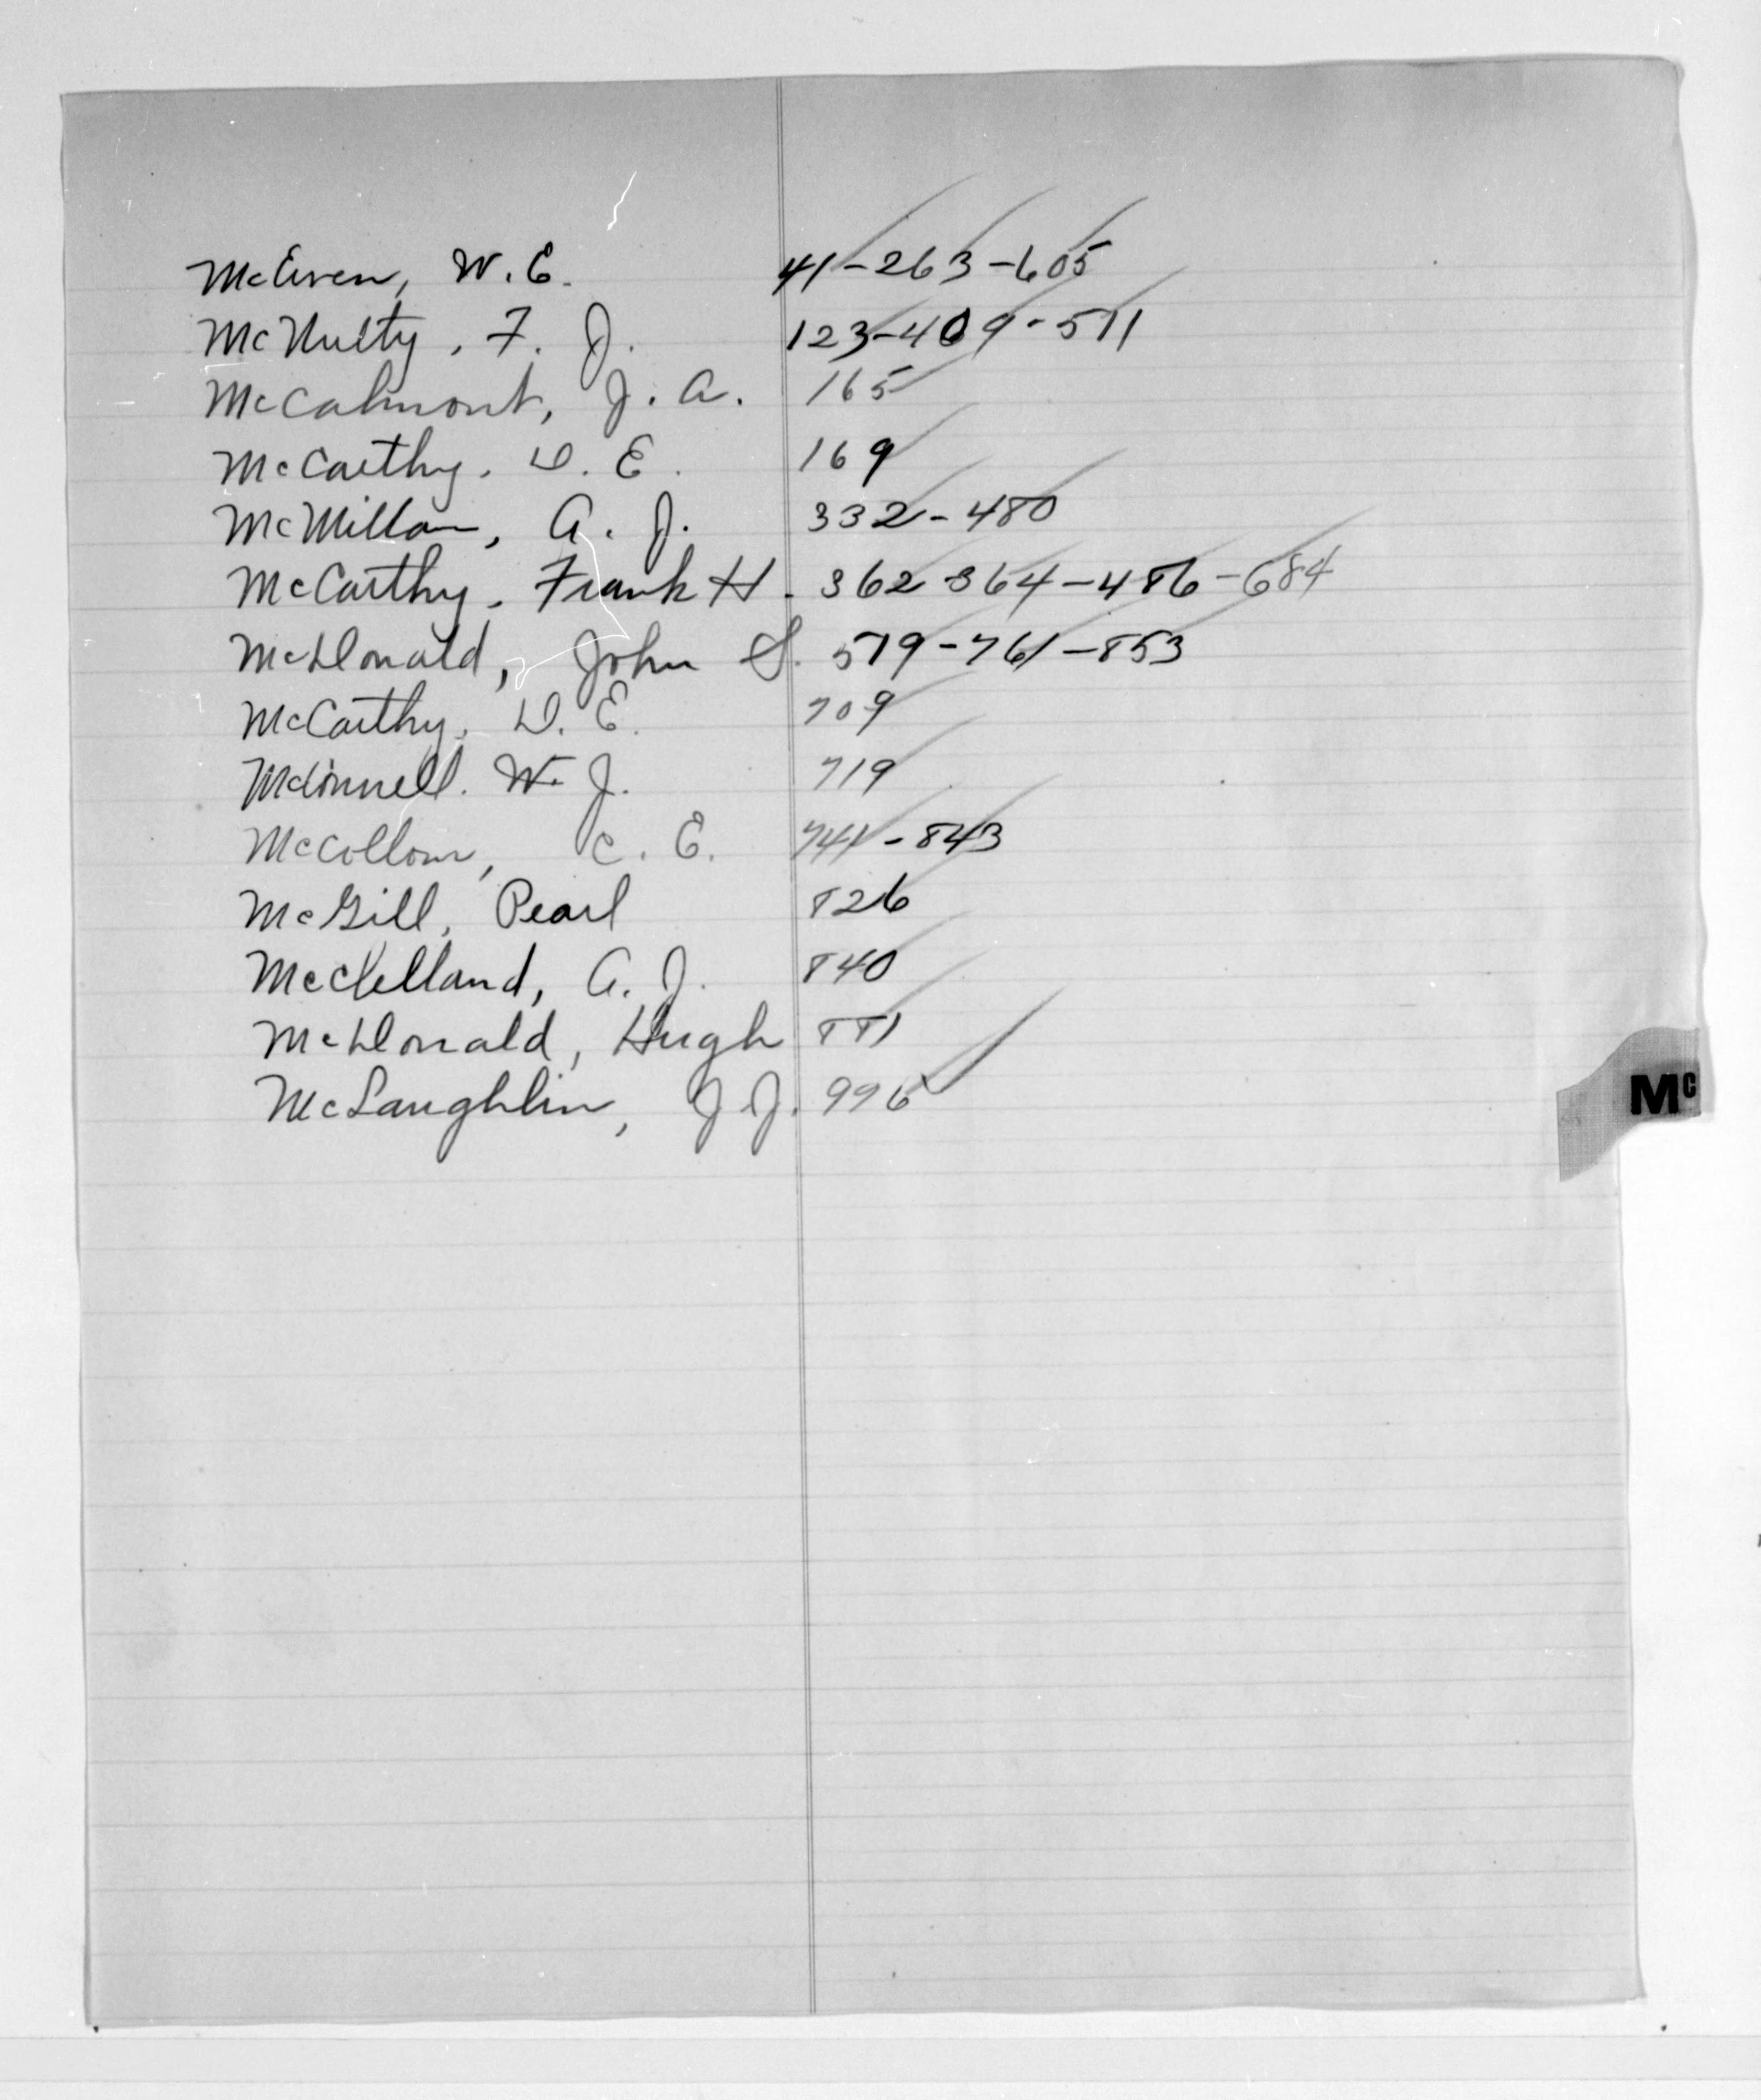 McEwen, W. E. 41-263-605
McNulty, F. J. 123-409-511
McCalmont, J. A. 165
McCarthy, D. E. 169
McMillan, A. J. 332-480
McCarthy, Frank H. 362 364-486-684
McDonald, John S. 579-761-853
McCarthy, D. E. 709
McConnell. W. J. 719
McCollom, C. E. 741-843
McGill, Pearl 826
McClelland, A. J. 840
McDonald, Hugh 881
McLaughlin, J. J. 996
Mc